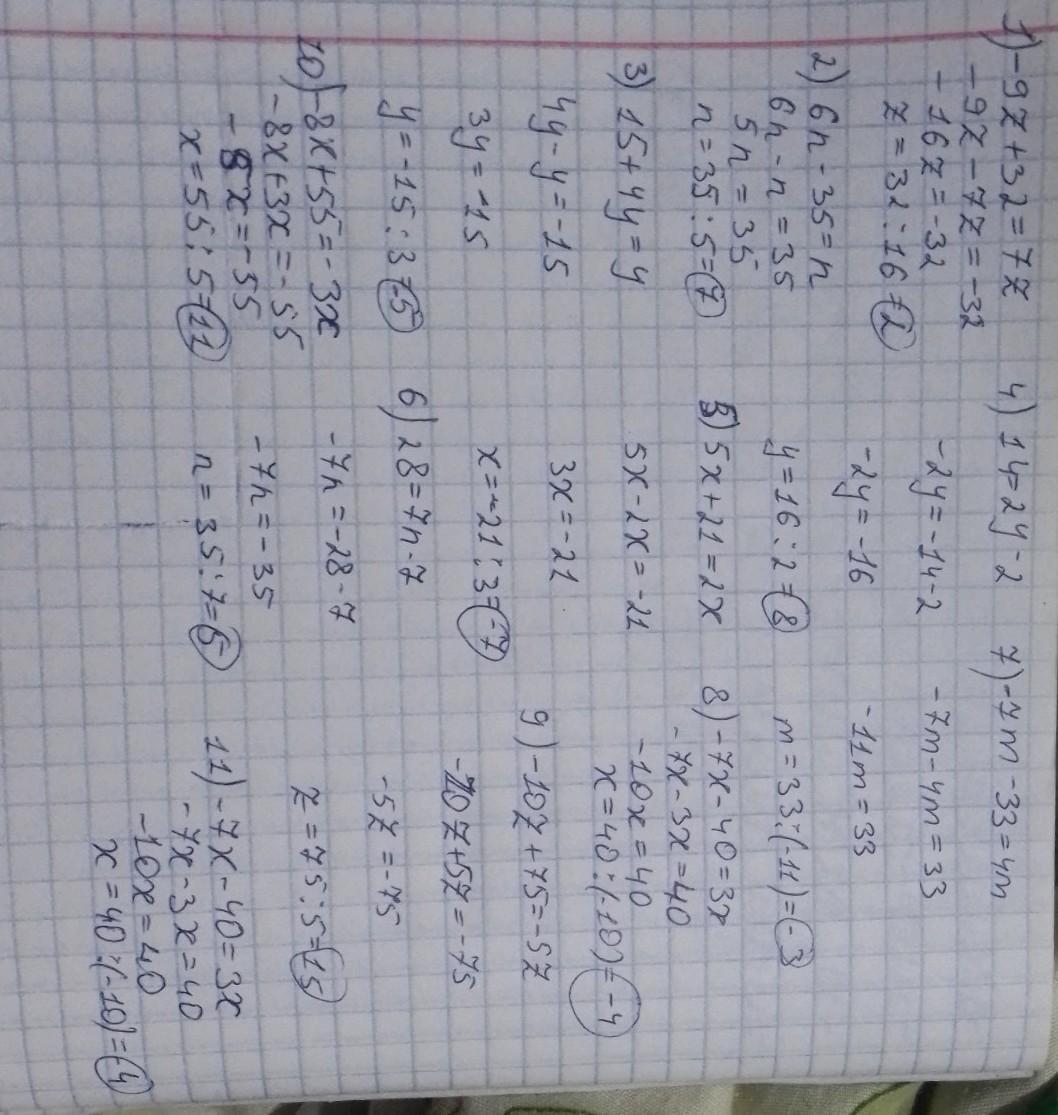 1) -9z+32=7z
-9z-7z=-32
-16z=-32
z=32:16=2
2) 6n-35=n
6n-n=35
5n=35
n=35:5=7
3) 15+4y=y
4y-y=-15
3y=-15
y=-15:3=-5
10) -8x+55=-3x
-8x+3x=-55
-5x=-55
x=55:5=11
4) 14=2y-2
-2y=-14-2
-2y=-16
y=16:2=8
5) 5x+21=2x
5x-2x=-21
3x=-21
x=-21:3=-7
6) 28=7n-7
-7n=-28-7
-7n=-35
n=35:7=5
7) -7m-33=4m
-7m-4m=33
-11m=33
m=33:(-11)=-3
8) -7x-40=3x
-7x-3x=40
-10x=40
x=40:(-10)=-4
9) -10z+75=-5z
-10z+5z=-75
-5z=-75
z=75:5=15
11) -7x-40=3x
-7x-3x=40
-10x=40
x=40:(-10)=-4